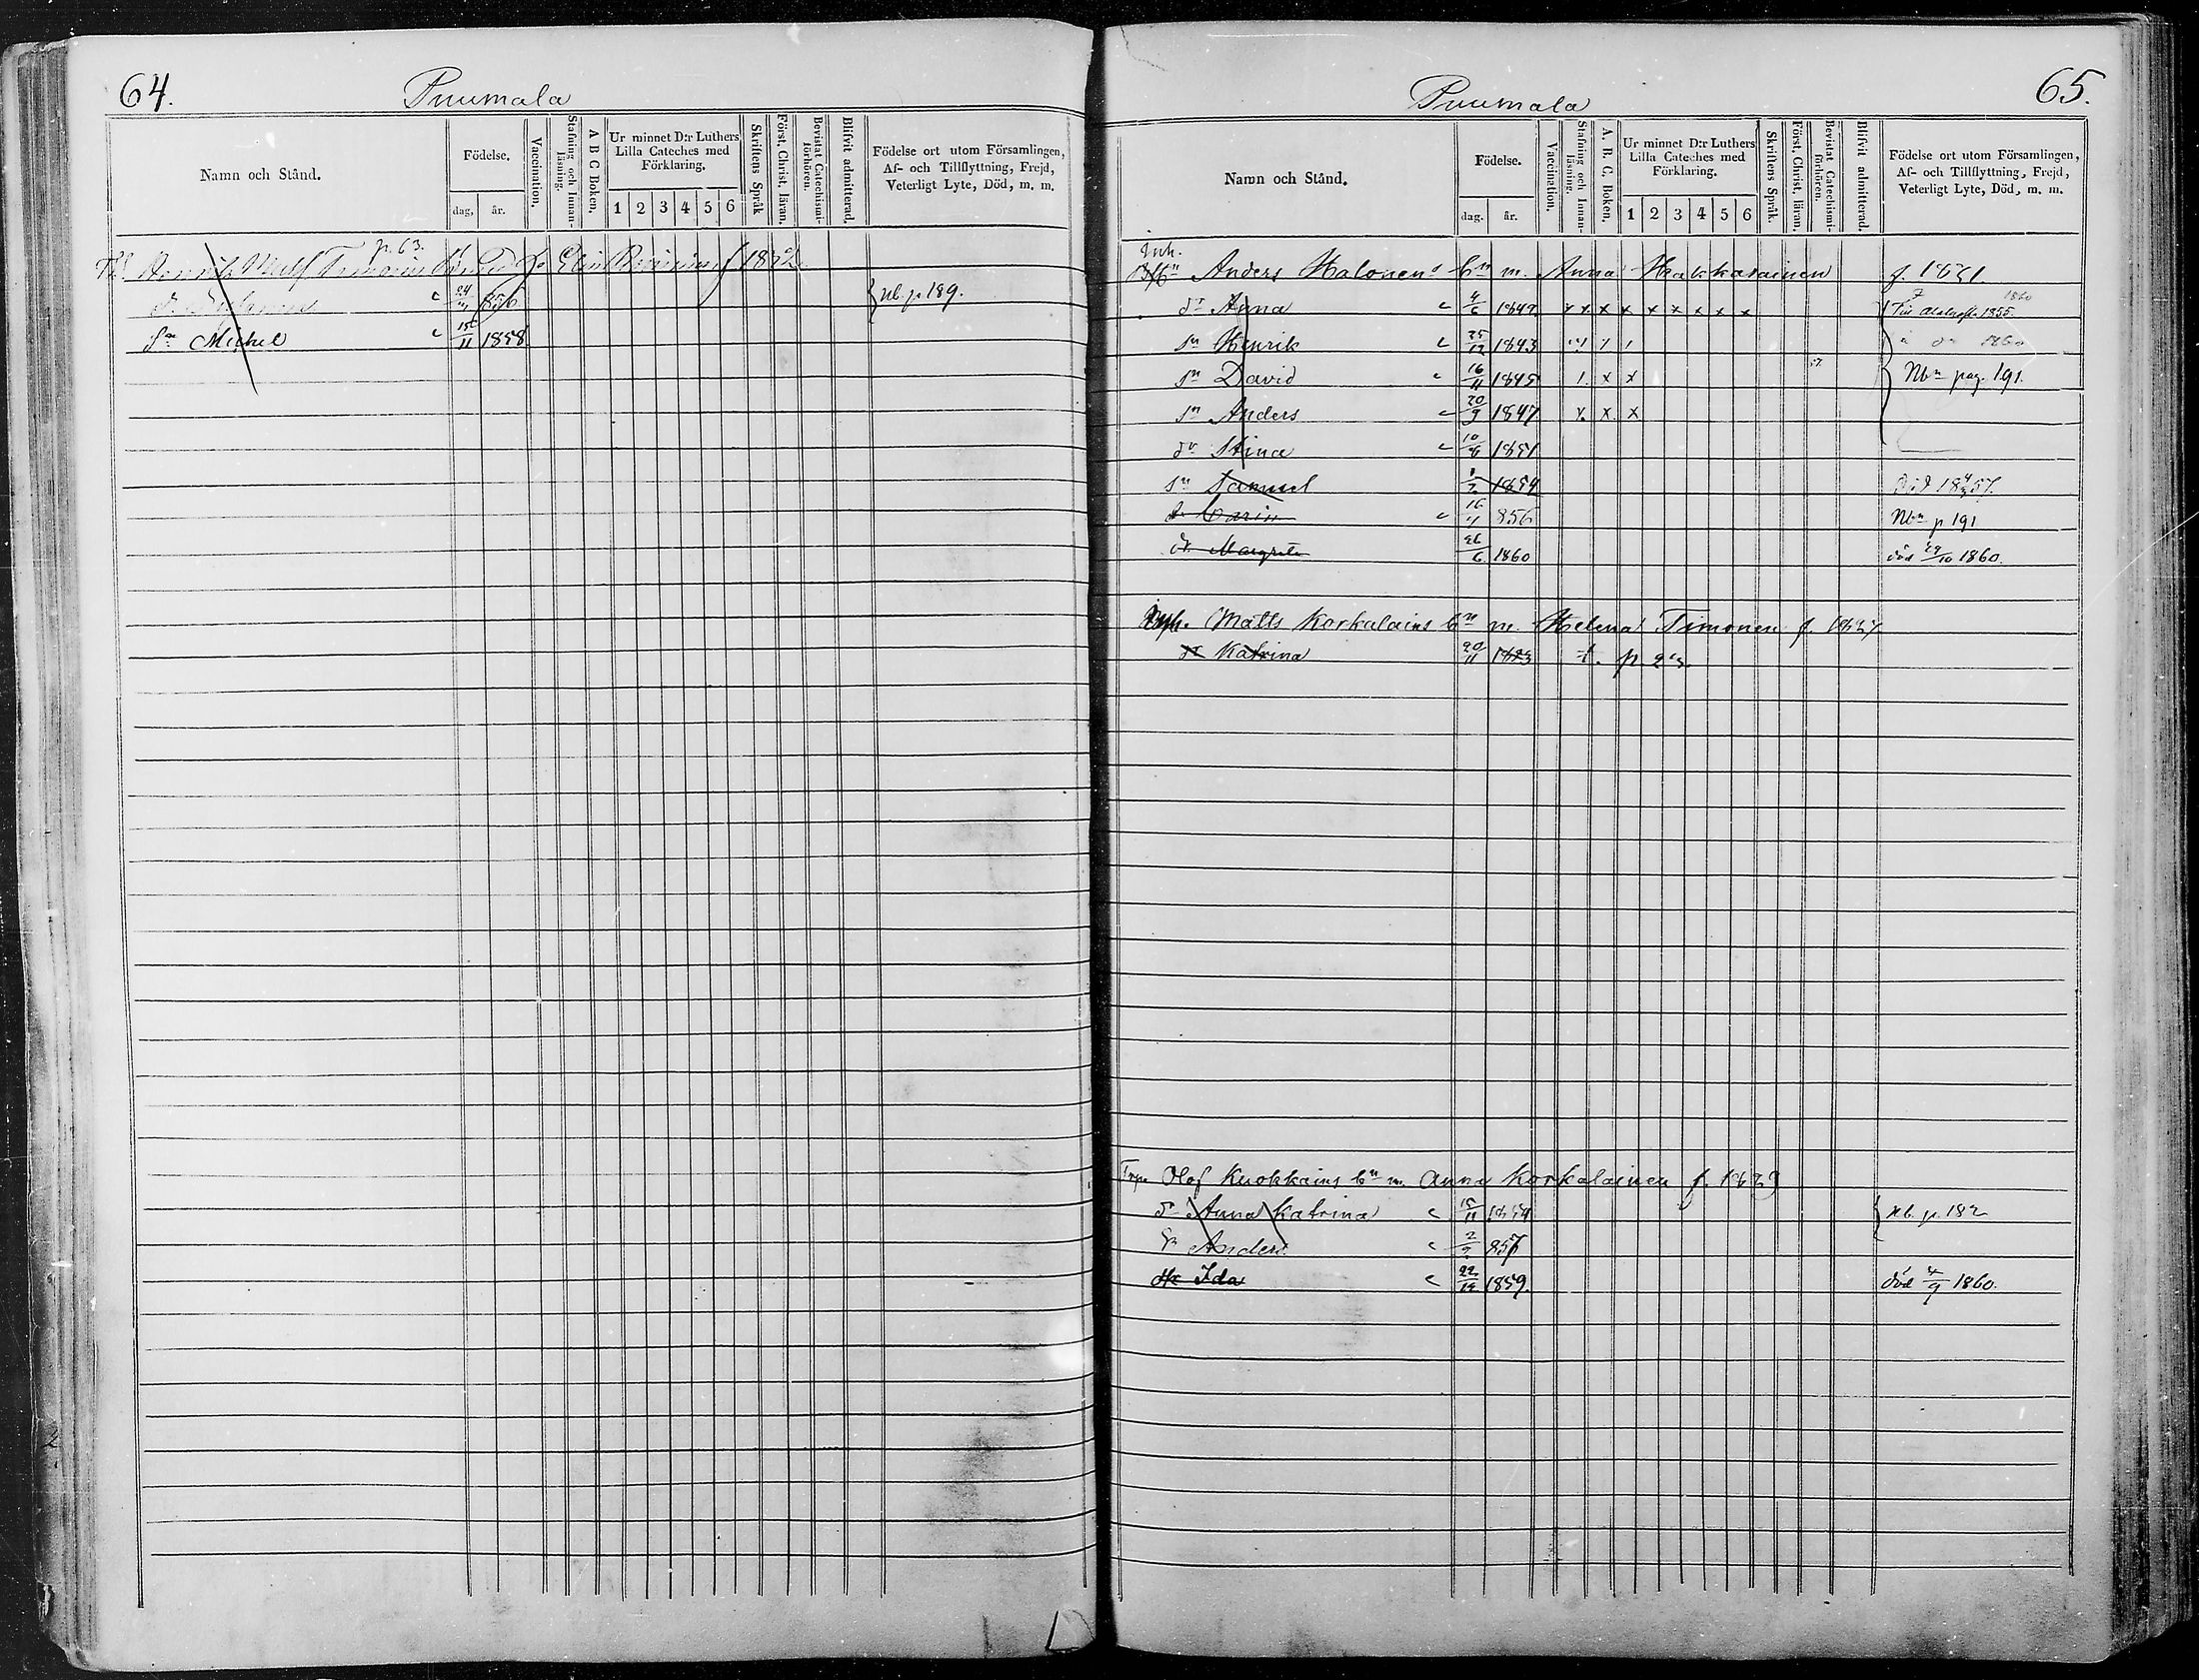 64.
Puumala
Namn och Stånd.
Födelse.
dag, år.
Vaccination.
Stafning och Innanläsning.
A B C Boken.
Ur minnet D:r Luthers Lilla Cateches med Förklaring.
1 2 3 4 5 6
Skriftens Språk
Först. Christ. läran.
Bevistat Catechismiförhören.
Blifvit admitterad.
Födelse ort utom Församlingen, Af- och Tillflyttning, Frejd, Veterligt Lyte, Död, m. m.
p. 63.
Elin
24 856 Nb. p 189.
sn Michel c 15/11 1858
65.
Puumala
Namn och Stånd.
Födelse.
dag. år.
Vaccination.
Stafning och Innanläsning.
A. B. C. Boken.
Ur minnet D:r Luthers Lilla Cateches med Förklaring.
1 2 3 4 5 6
Skriftens Språk.
Först. Christ. läran.
Bevistat Catechismiförhören.
Blifvit admitterad.
Födelse ort utom Församlingen, Af- och Tillflyttning, Frejd, Veterligt Lyte, Död, m. m.
Inh.
Anders Halonens bn m. Anna Hakkarainen f. 1821.
dr Anna c 4/6 1842 x x x x x x x x x 1855. 1860
sn Henrik c 25/12 1843 1860
sn David c 16/11 1845 1. x x Nbn pag. 191.
sn Anders c 20/9 1847 x. x. x
dr Stina c 10/8 1851
sn Samuel 1/2 1854 Död 1857.
dr Carin c 16/11 856 Nbn p 191
dr Margreta 26/6 1860 död 28/10 1860.
Inh. Matts Korkalains bn m. Helena Timonen f. 1827
dr Katrina 20/11
Olof Kuokkains bn m. Anna Korkalainen f. 1829
dr Anna Katrina c 15/11 1854 Nb. p. 182
sn Anders c 2/2 857
dr Ida c 22/12 1859. död 4/9 1860.